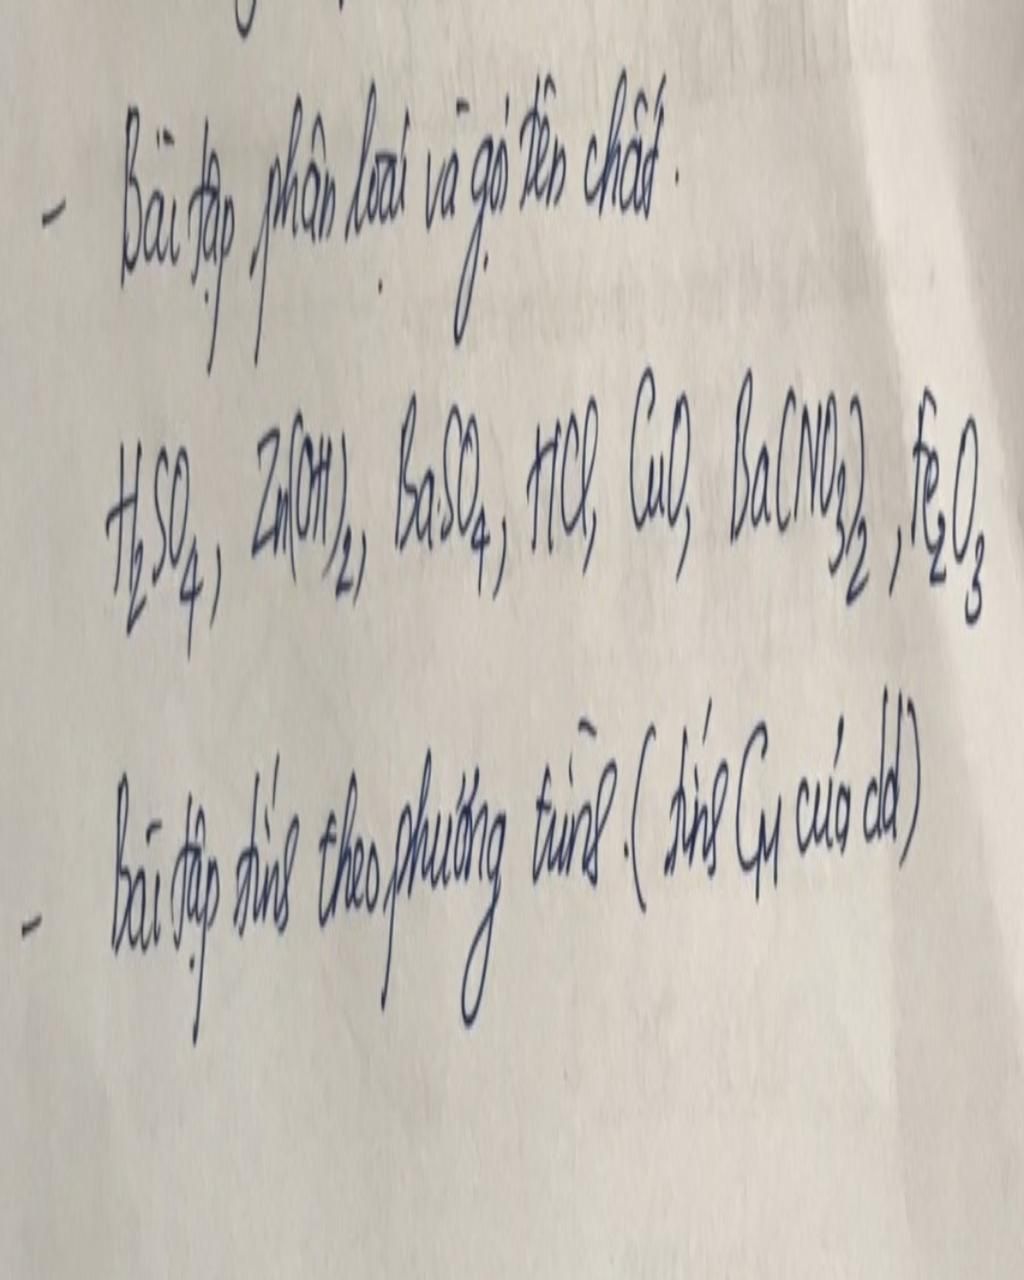 - Bài tập phân loại và gọi tên chất.
H₂SO₄, Zn(OH)₂, BaSO₄, HCl, CuO, Ba(NO₃)₂, Fe₂O₃
- Bài tập tính theo phương trình. (tính C_M của dd)